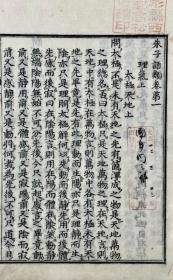 朱子語類卷第一
理氣上
太極天地上
問太極不是未有天地之先有箇渾成之物是天地萬物
之理總名否曰太極只是天地萬物之理在天地言則
天地中有太極在萬物言則萬物中各有太極未有天
地之先畢竟是先有此理動而生陽亦只是理靜而生
陰亦只是理問太極解何以先動而後靜先用而後體
先感而後寂曰在陰陽言則用在陽而體在陰然動靜
無端陰陽無始不可分先後今只就起處言之畢竟動
前又是靜用前又是體感前又是寂陽前又是陰而寂
前又是感靜前又是動將何者為先後不可只道今日